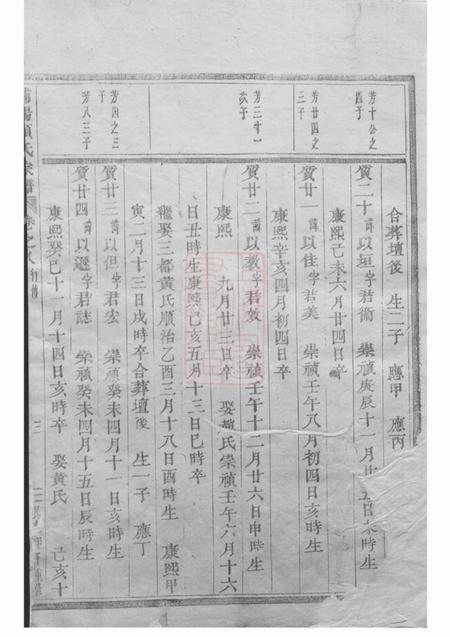 合葬壇後 生二子 應甲 應丙
芳十公之四子
質二十 諱以垣字君衛 崇禎庚辰十一月 五日 時生
康熙己未六月廿四日卒
芳廿四之三子
質廿一 諱以佳字君美 崇禎壬午八月初四日亥時生
康熙辛亥四月初四日卒
芳三十一次子
質廿二 諱以教字君效 崇禎壬午十二月廿六日申時生
康熙 九月廿三日卒 娶黃氏崇禎壬午六月十六
日丑時生康熙己亥五月十三日巳時卒
繼娶三都黃氏順治乙酉三月十八日酉時生 康熙甲
寅二月十三日戌時卒合葬壇後 生一子 應丁
芳四之三子
質廿三 諱以但字君宏 崇禎癸未四月十一日亥時生
芳八三子
質廿四 諱以遜字君誌 崇禎癸未四月十五日辰時生
康熙癸巳十一月十四日亥時卒 娶黃氏 己亥十
氏宗譜 卷之八 行傳 三